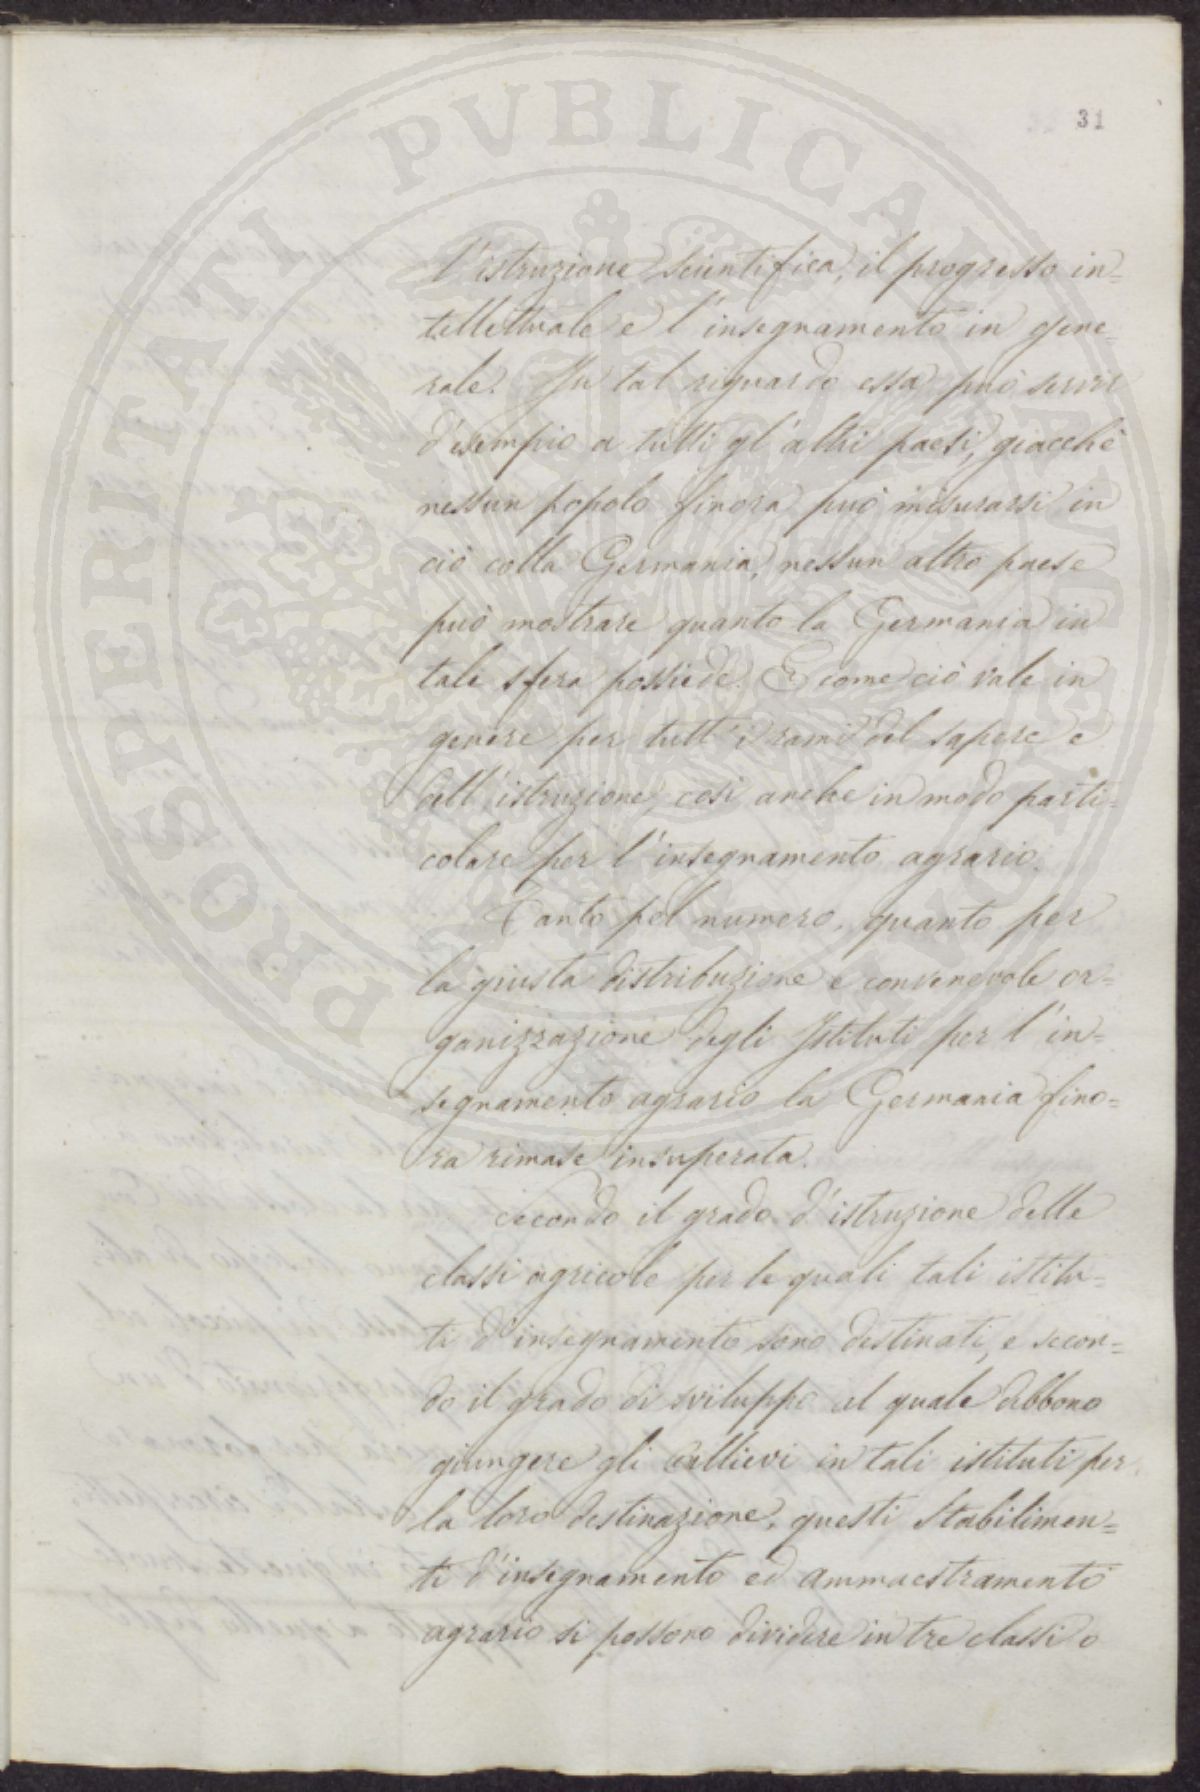 31
l'istruzione scientifica, il progresso in=
tellettuale e l'insegnamento in gene=
rale. In tal riguardo essa può servir
d'esempio a tutti gl'altri paesi, giacchè
nessun popolo finora può misurarsi in
ciò colla Germania, nessun altro paese
può mostrare quanto la Germania in
tale sfera possiede. E come ciò vale in
genere per tutt'i rami del sapere e
dell'istruzione, così anche in modo parti=
colare per l'insegnamento agrario.
Tanto pel numero, quanto per
la giusta distribuzione e convenevole or=
ganizzazione degli Istituti per l'in=
segnamento agrario la Germania fino=
ra rimase insuperata.
Secondo il grado d'istruzione delle
classi agricole per le quali tali istitu=
ti d'insegnamento sono destinati, e secon=
do il grado di sviluppo al quale debbono
giungere gli allievi in tali istituti per
la loro destinazione, questi stabilimen=
ti d'insegnamento ed ammaestramento
agrario si possono dividere in tre classi o
PROSPERITATI PVBLICAE